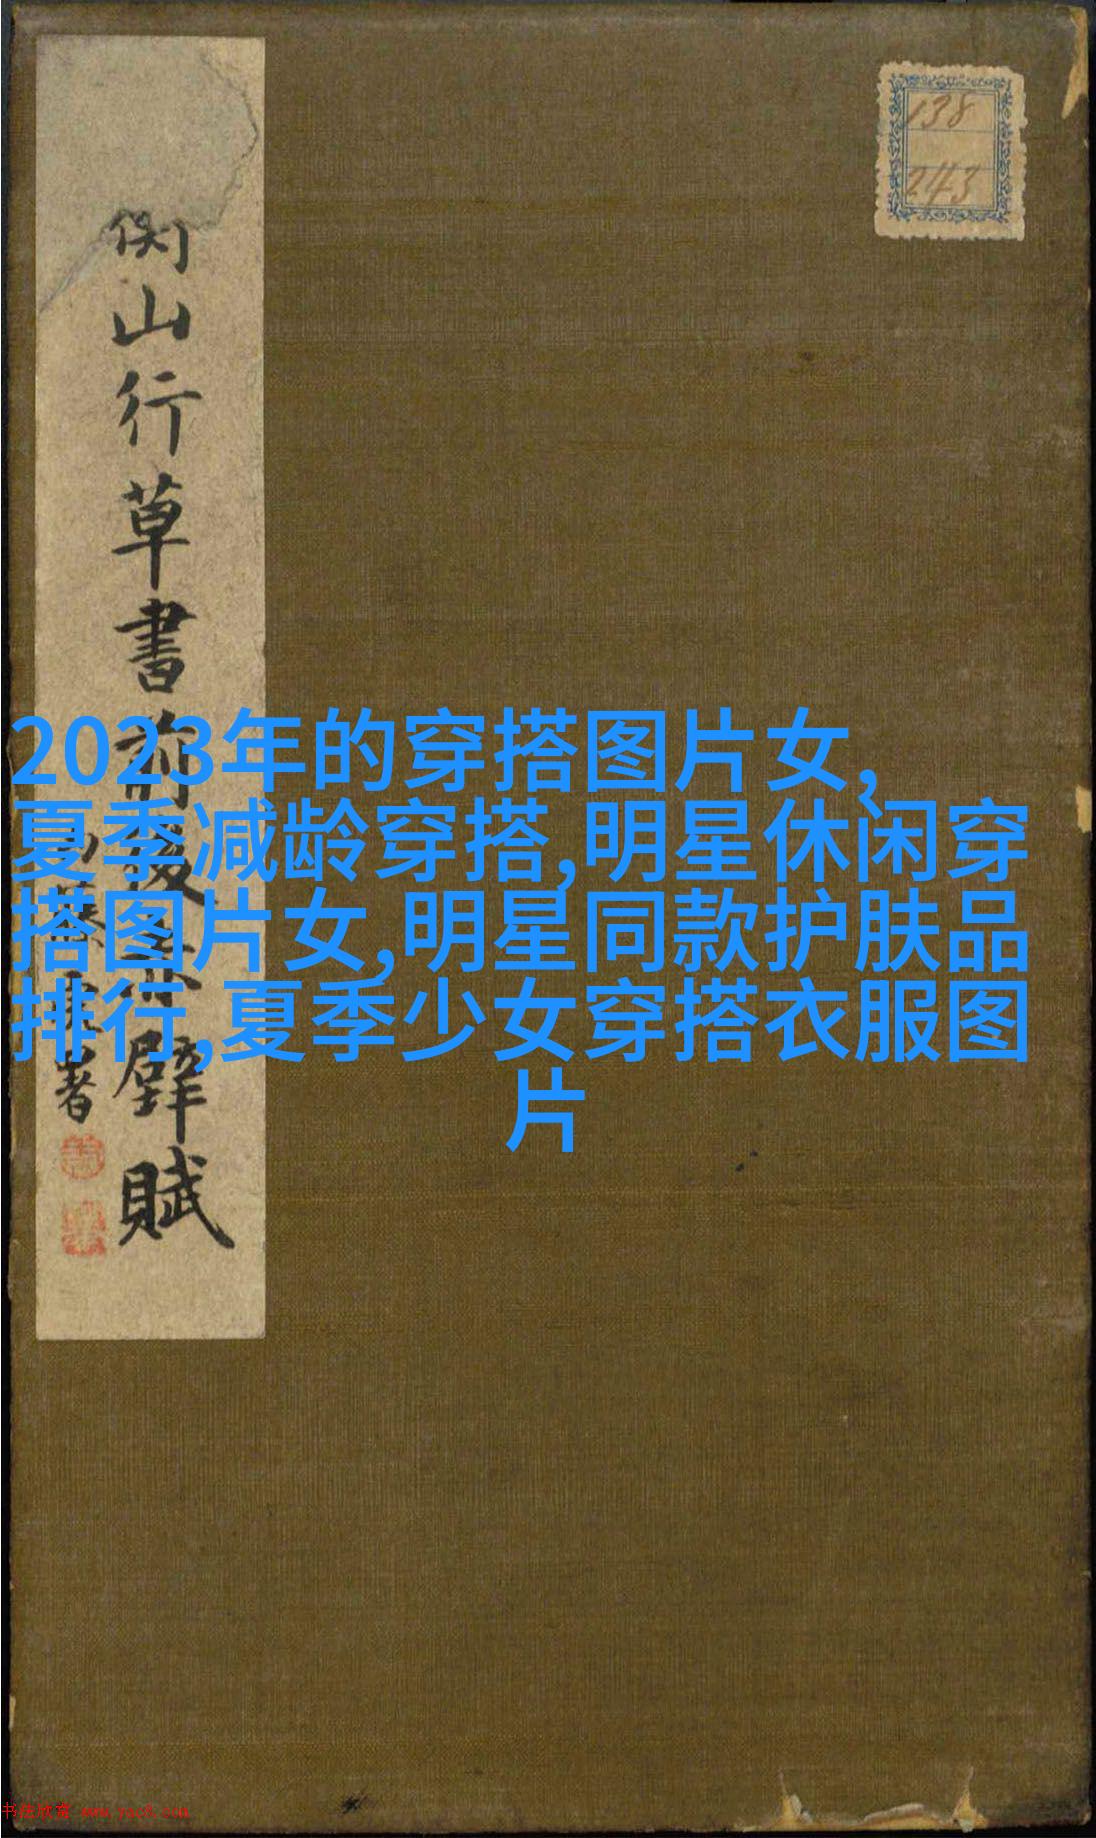 138
243
山行草書前後赤壁賦
署
2023年的穿搭图片女,
夏季减龄穿搭,明星休闲穿
搭图片女,明星同款护肤品
排行,夏季少女穿搭衣服图
片
书法欣赏 www.yac8.com